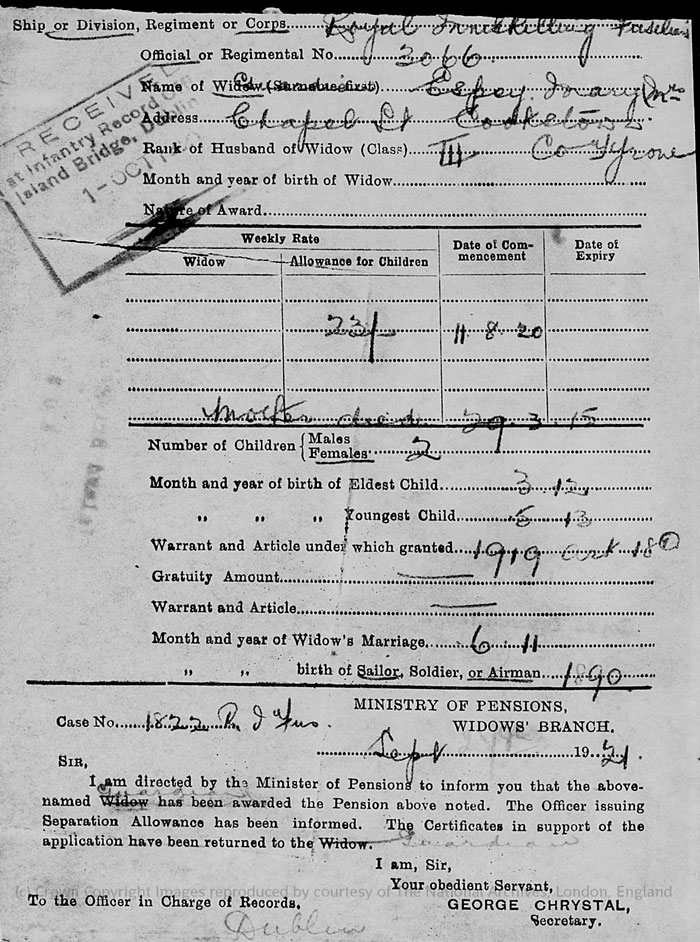 Ship or Division, Regiment or Corps Royal Inniskilling Fusiliers
Official or Regimental No. 3066
Name of Widow (Surname first) Espey Mary (Mrs
Address Chapel St Cookstown
Rank of Husband of Widow (Class) III Co Tyrone
Month and year of birth of Widow
Nature of Award
RECEIVED
at Infantry Record
Island Bridge, Dublin
1-OCT
Weekly Rate
Widow
Allowance for Children
Date of Com-
mencement
Date of
Expiry
23/ 11 8 20
Mother died 29. 3 15
Number of Children { Males
Females 2
Month and year of birth of Eldest Child 3. 12
„ „ „ Youngest Child 5 13
Warrant and Article under which granted 1919 art 18
Gratuity Amount
Warrant and Article
Month and year of Widow's Marriage 6. 11
„ „ birth of Sailor, Soldier, or Airman 1890
Case No. 1822 R. I Fus.
MINISTRY OF PENSIONS,
WIDOWS' BRANCH.
Sept 1921
SIR,
I am directed by the Minister of Pensions to inform you that the above-
Guardian
named Widow has been awarded the Pension above noted. The Officer issuing
Separation Allowance has been informed. The Certificates in support of the
application have been returned to the Widow. Guardian
I am, Sir,
Your obedient Servant,
GEORGE CHRYSTAL,
Secretary.
To the Officer in Charge of Records.
Dublin
(c) Crown Copyright Images reproduced by courtesy of The National Archives, London, England